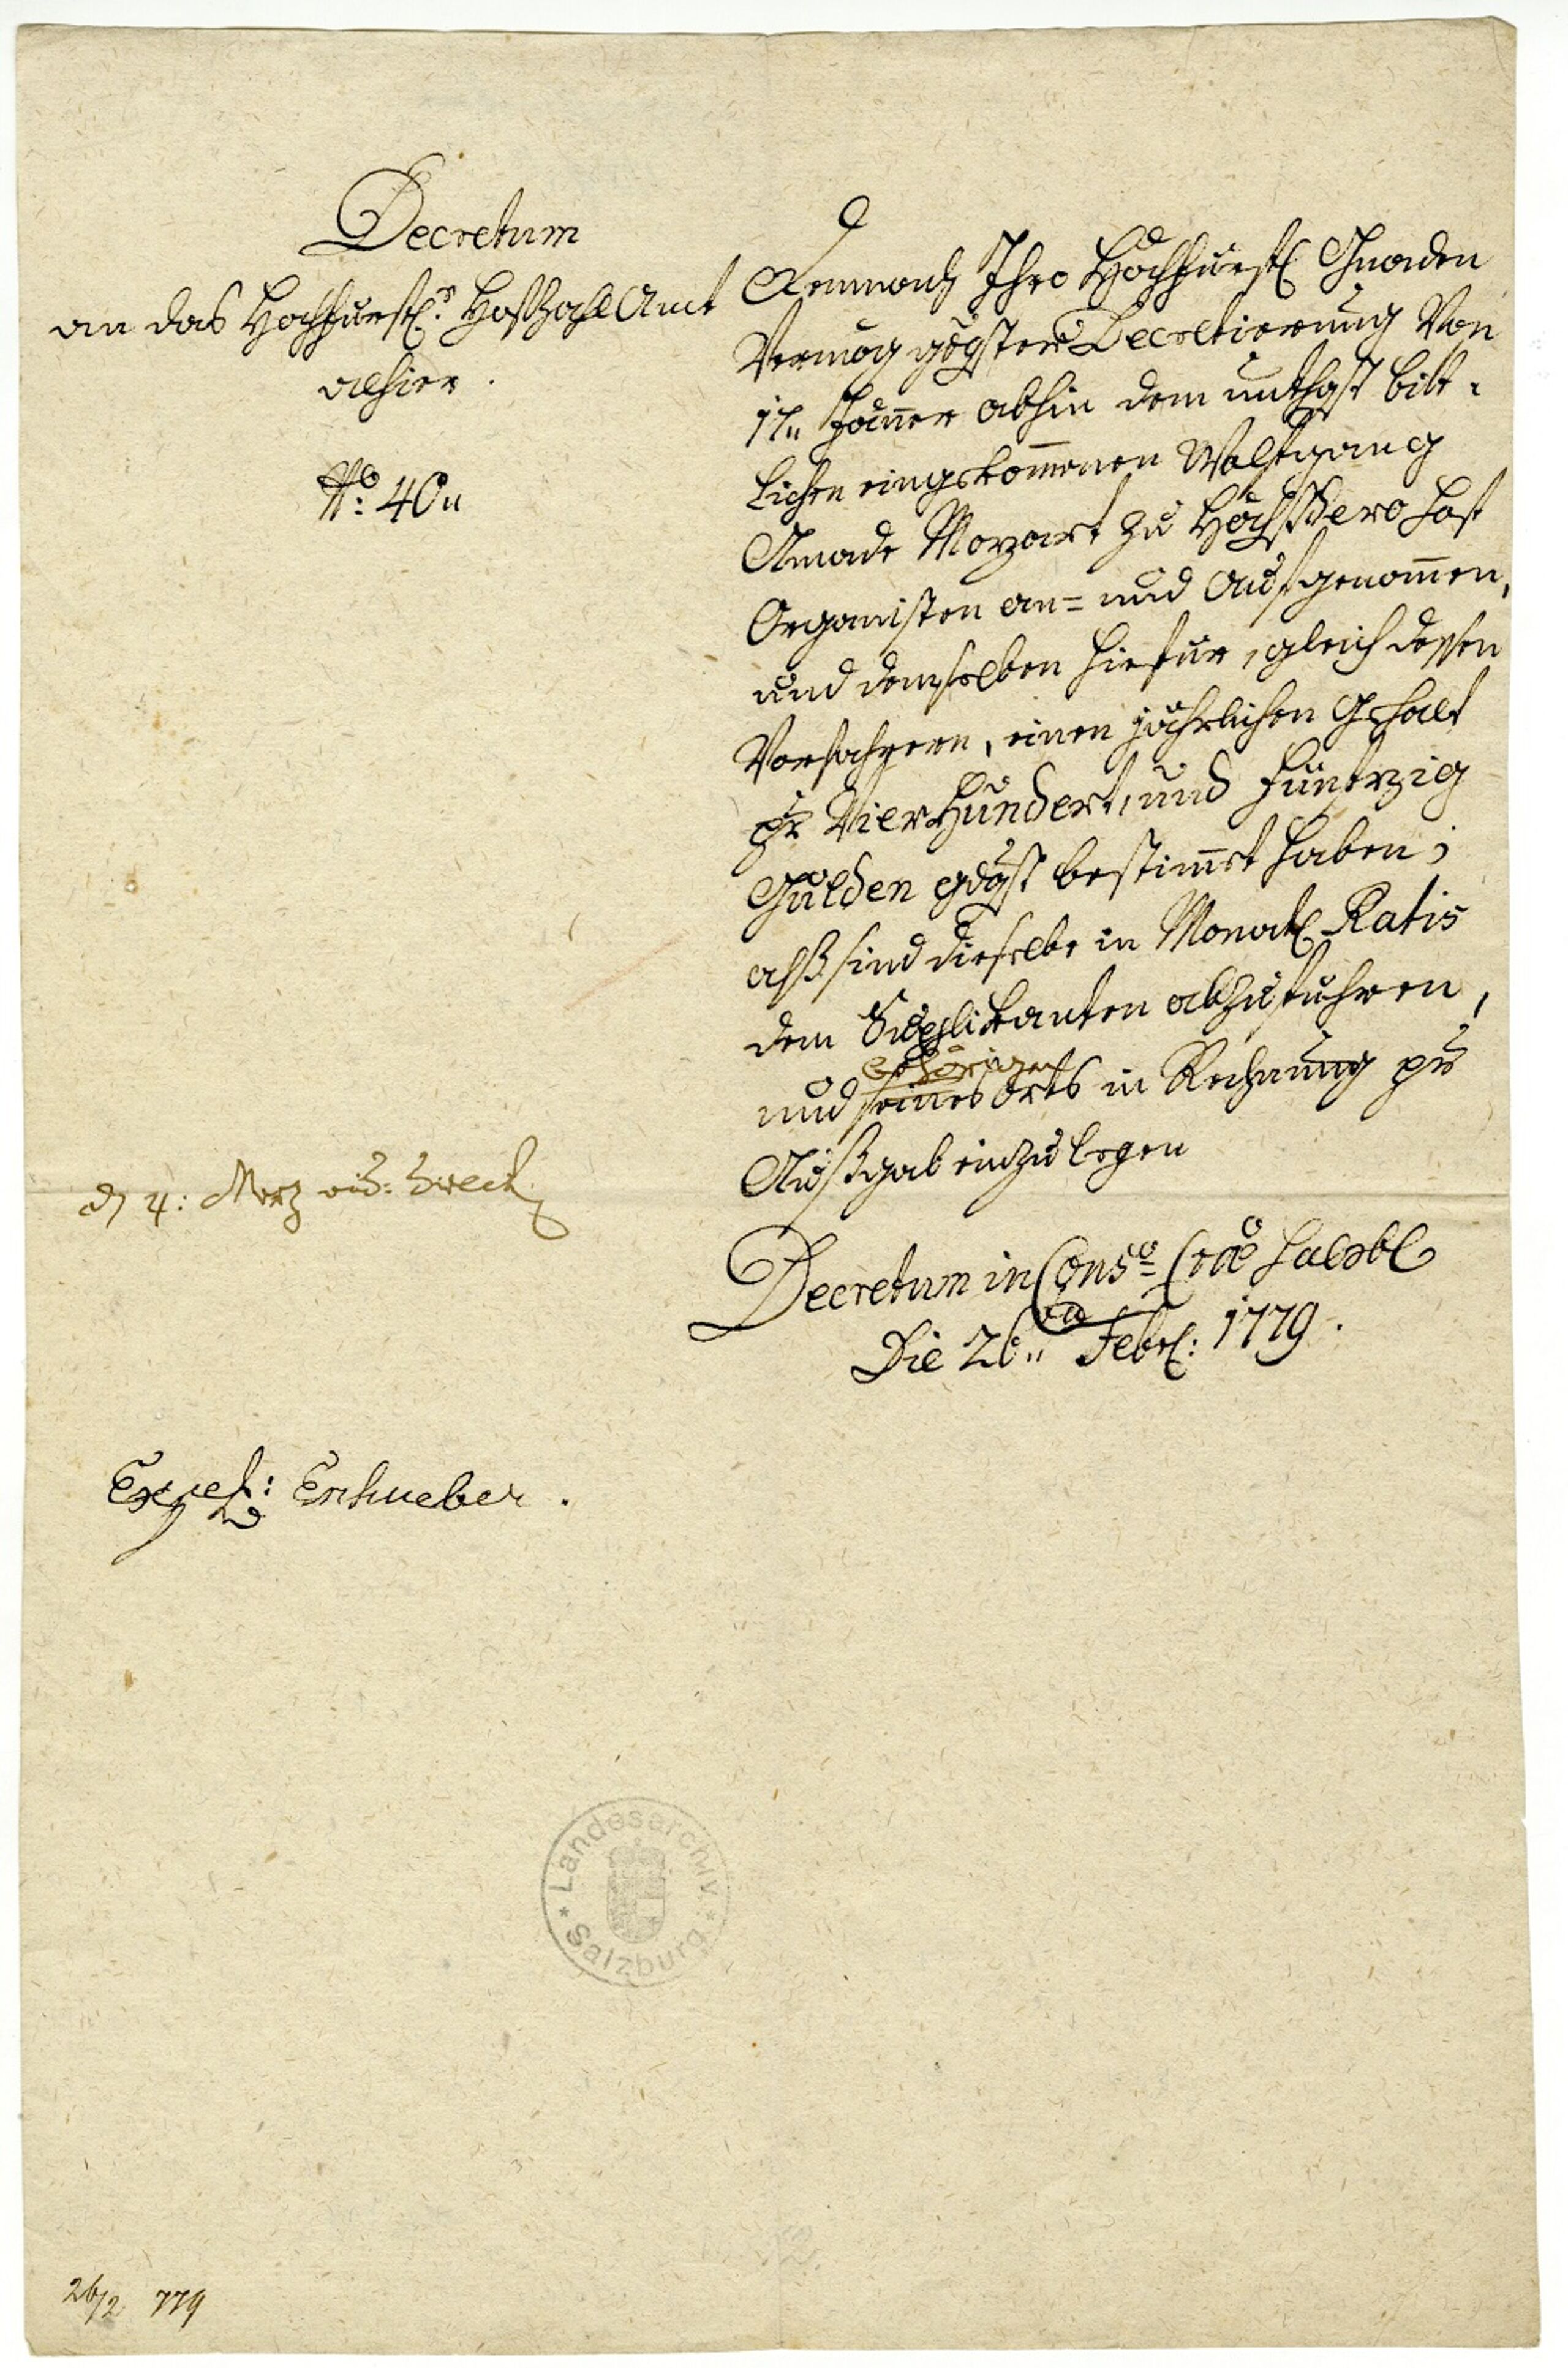 Decretum
an das Hochfürstl: Hofzahl Amt
alhier.
No: 40"
Demnach Ihro Hochfürstl Gnaden
Vermög ggster Decretierung Von
17" Jäner abhin dem unthgst bitt-
lichen eingekomenen Wolfgang
Amade Mozart zu Höchstdero Hof
Organisten an= und aufgenomen,
und demselben hiefür, gleich dessen
Vorfahrern, einen jährlichen Gehalt
pr Vier Hundert, und Fünfzig
Gulden gdgst bestimt haben;
alß sind dieselbe in Monatl Ratis
dem Supplikanten abzuführen,
behörigen
und seines orts in Rechnung pr
Außgab einzulegen
d 4: Merz
Decretum in Conso Crae Salzbl
Die 26" Febrl: 1779.
Exped: Enhueber.
Landesarchiv
Salzburg
26/2 779